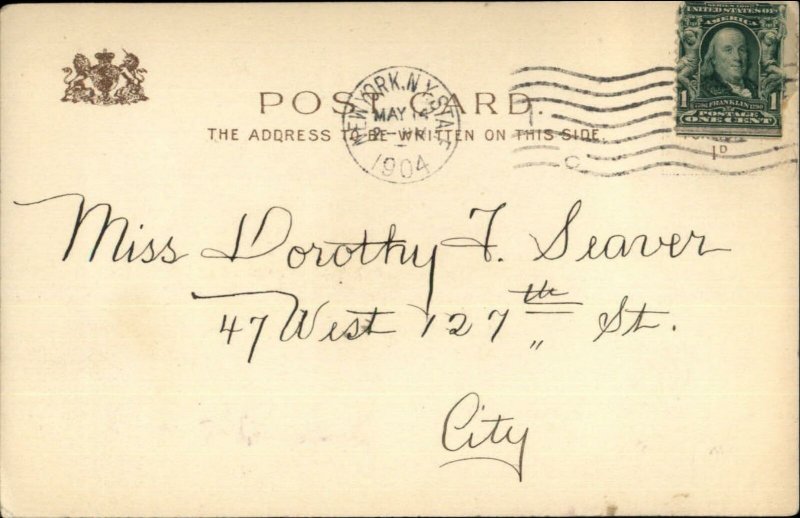 POST CARD.
THE ADDRESS TO BE WRITTEN ON THIS SIDE.
NEW YORK, N.Y. STA.
MAY 14
1904
SERIES 1902
UNITED STATES OF
AMERICA
1 FRANKLIN 1
POSTAGE
ONE CENT
1D
Miss Dorothy F. Seaver
47 West 127th St.
City